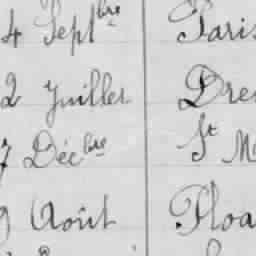 4 Septbre Paris
2 Juillet Dre
7 Décbre St M
9 Août Ploa